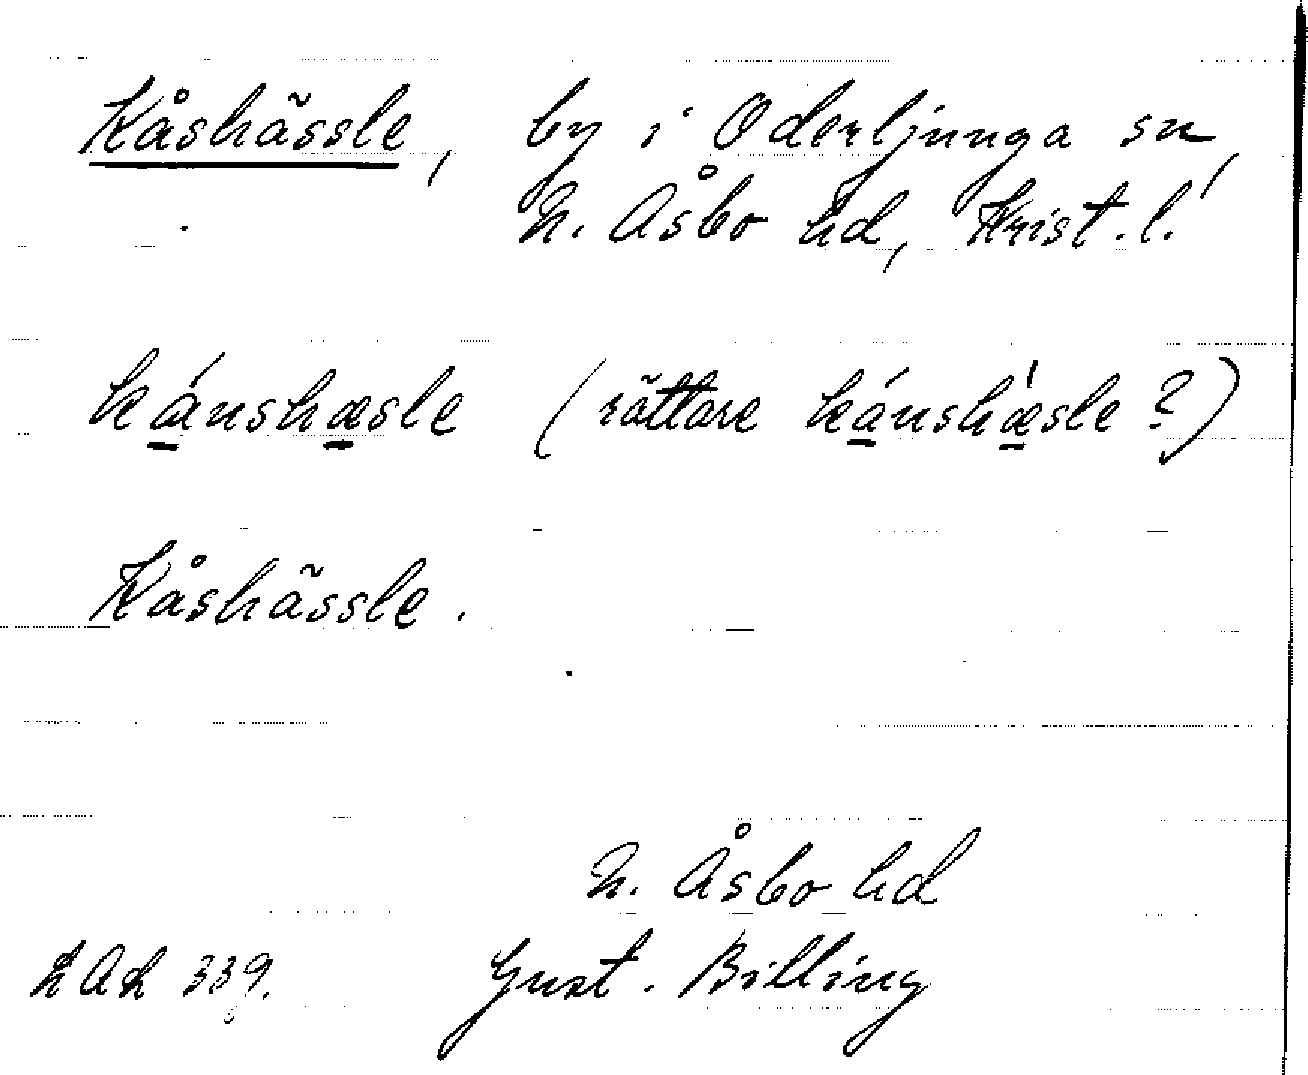 Kåshässle, by i Oderljunga sn,
N. Åsbo hd, Krist. l.
kánshæsle (rättare kánshǽsle?)
Kåshässle.
N. Åsbo hd
LAL 339. Gust. Billing